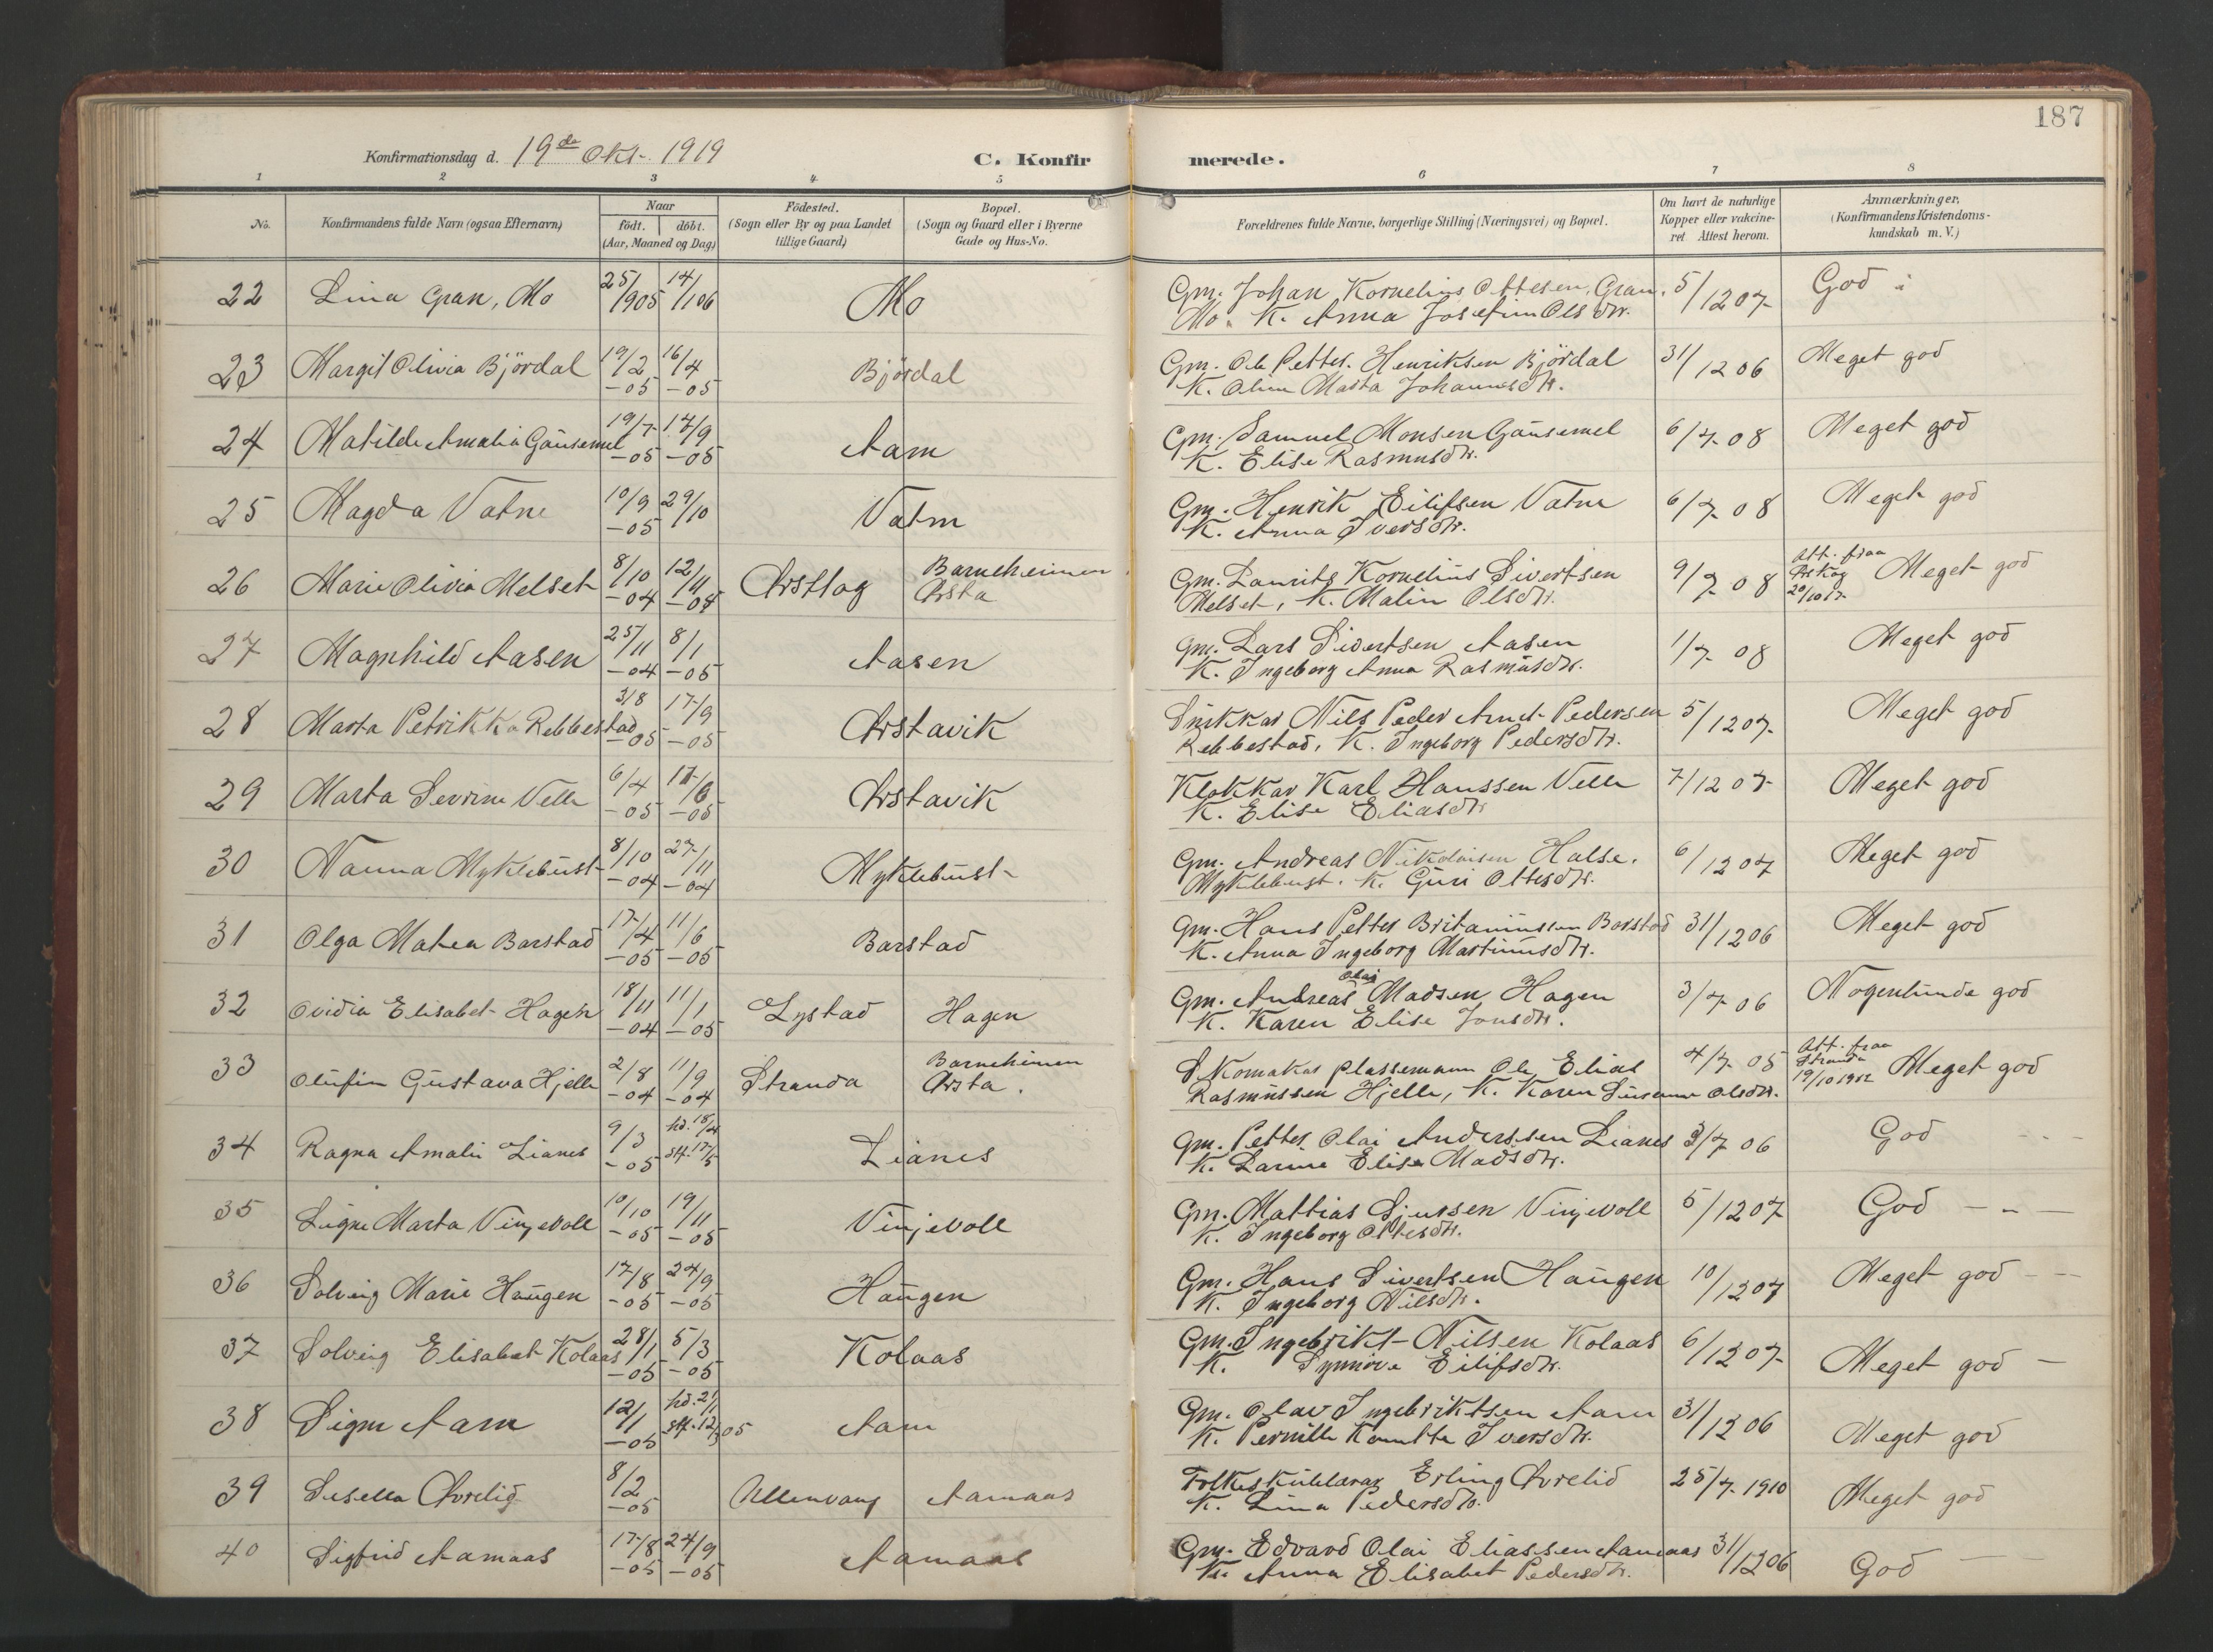 187
Konfirmationsdag d. 19de Okt. 1919
C. Konfirmerede.
1 2 3 4 5 6 7 8
No.
Konfirmandens fulde Navn (ogsaa Efternavn)
Naar
födt. döbt.
(Aar, Maaned og Dag)
Födested.
(Sogn eller By og paa Landet
tillige Gaard)
Bopæl.
(Sogn og Gaard eller i Byerne
Gade og Hus-No.
Forældrenes fulde Navne, borgerlige Stilling (Næringsvei) og Bopæl.
Om havt de naturlige
Kopper eller vakcine-
ret Attest herom.
Anmærkninger.
(Konfirmandens Kristendoms-
kundskab m. V.)
22 Lina Gran, Mo 25/1 1905 14/1 06 Mo Gm. Johan Kornelius Ottesen, Gran, 5/12 07 God
Mo. K. Anna Josefine Olsdtr.
23 Margit Olivia Björdal 19/2 -05 16/4 -05 Björdal Gm. Ole Petter Henriksen Björdal 31/12 06 Meget god
K. Oline Marta Johannesdtr.
24 Matilde Amalia Gausemel 19/7 -05 17/9 -05 Aam Gm. Samuel Monsen Gausemel 6/7 08 Meget god
K. Elise Rasmusdtr.
25 Magda Vatne 10/9 -05 29/10 Vatne Gm. Henrik Eilifsen Vatne 6/7 08 Meget god
K. Anna Iversdtr.
26 Marie Olivia Melset 8/10 -04 12/11 -04 Örskog Barneheimen Gm. Laurits Kornelius Sivertsen 9/7 08 Att. fraa Meget god
Örsta Melset, K. Malin Olsdtr. Örskog
20/10 17
27 Magnhild Aasen 25/11 -04 8/1 -05 Aasen Gm. Lars Sivertsen Aasen 1/7 08 Meget god
K. Ingeborg Anna Rasmusdtr.
28 Marta Petrikka Rebbestad 3/8 -05 17/9 -05 Örstavik Snikkar Nils Peder Arnet Pedersen 5/12 07 Meget god
Rebbestad, K. Ingeborg Pedersdtr.
29 Marta Severine Velle 6/4 -05 11/6 -05 Örstavik Klokkar Karl Hanssen Velle 7/12 07 Meget god
K. Elise Eliasdtr.
30 Nanna Myklebust 8/10 -04 27/11 -04 Myklebust Gm. Andreas Nikolaisen Halse. 6/12 07 Meget god
Myklebust. K. Guri Ottesdtr.
31 Olga Matea Barstad 17/4 -05 11/6 -05 Barstad Gm. Hans Petter Britaniussen Barstad 31/12 06 Meget god
K. Anna Ingeborg Martinusdtr.
32 Ovidia Elisabet Hagen 18/11 -04 11/1 -05 Lystad Hagen Gm. Andreas Olai Madsen Hagen 3/7 06 Nogenlunde god
K. Karen Elise Jonsdtr.
33 Olufine Gustava Hjelle 2/8 -04 11/9 -04 Stranda Barneheimen Skomakar plassemann Ole Elias 4/7 05 Att. fraa Meget god
Örsta. Rasmussen Hjelle, K. Karen Susanne Olsdtr. Stranda
19/10 1912
34 Ragna Amalie Lianes 9/3 -05 hd. 18/4 stf. 17/5 Lianes Gm. Petter Olai Anderssen Lianes 3/7 06 God
K. Larine Elise Madsdtr.
35 Signe Marta Vinjevoll 10/10 -05 19/11 -05 Vinjevoll Gm. Mattias Sjursen Vinjevoll 5/12 07 God
K. Ingeborg Ottesdtr.
36 Solveig Marie Haugen 17/8 -05 24/9 -05 Haugen Gm. Hans Sivertsen Haugen 10/12 07 Meget god
K. Ingeborg Nilsdtr.
37 Solveig Elisabet Kolaas 28/1 -05 5/3 -05 Kolaas Gm. Ingebrikt Nilsen Kolaas 6/12 07 Meget god
K. Synnöve Eilifsdtr.
38 Signe Aam 12/1 -05 hd. 21/1 stf. 12/3 05 Aam Gm. Olav Ingebriktsen Aam 31/12 06 Meget god
K. Pernille Iversdtr.
39 Sesella Övrelid 8/2 -05 Ullensvang Aamaas Folkeskullærar Erling Övrelid 25/7 1910 Meget god
K. Lina Pedersdtr.
40 Sigfrid Aamaas 17/8 -05 24/9 -05 Aamaas Gm. Edvard Olai Eliassen Aamaas 31/12 06 God
K. Anna Elisabet Pedersdtr.